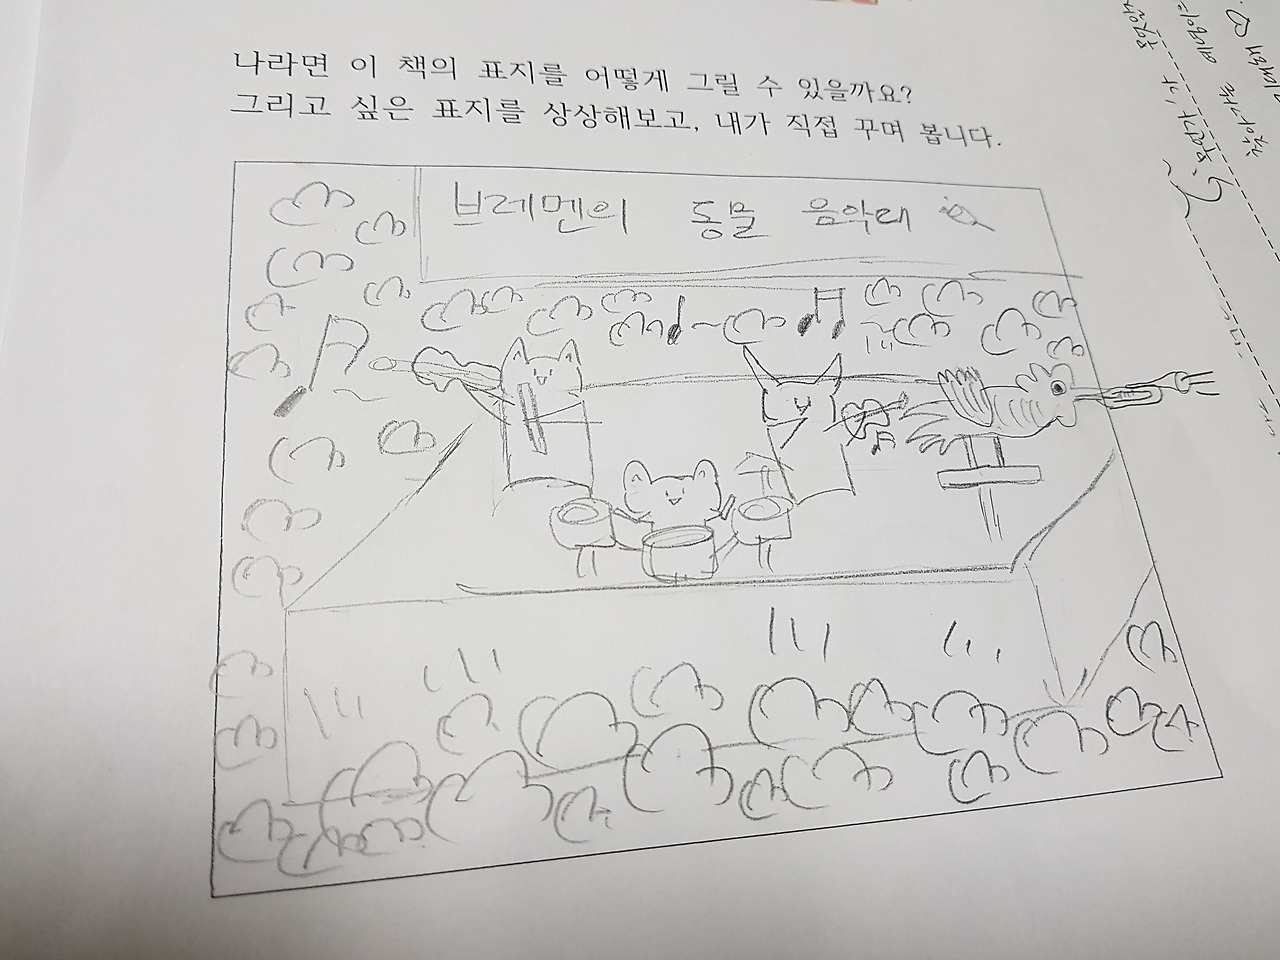 나라면 이 책의 표지를 어떻게 그릴 수 있을까요?
그리고 싶은 표지를 상상해보고, 내가 직접 꾸며 봅니다.
브레멘의 동물 음악대